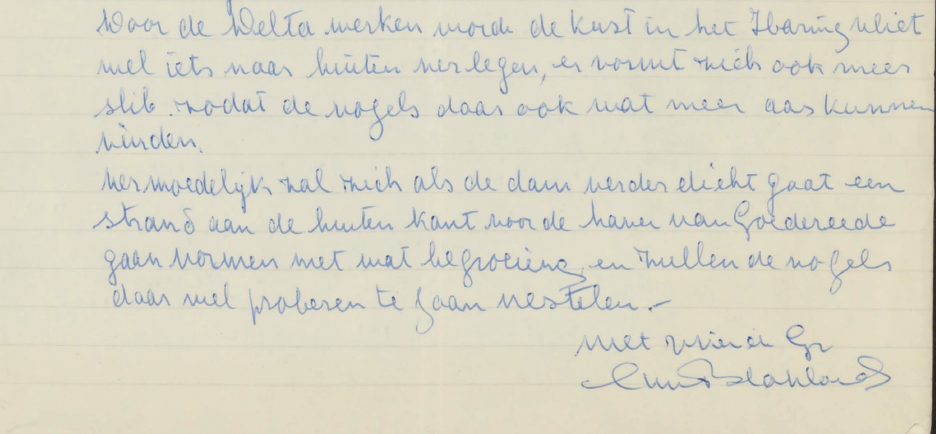 Door de Delta werken word de kust in het Haringvliet
wel iets naar buiten verlegen, er vormt zich ook meer
slib. zodat de vogels daar ook wat meer aas kunnen
vinden.
Vermoedelijk zal zich als de dam verder dicht gaat een
strand aan de buiten kant voor de haven van Goedereede
gaan vormen met wat begroeiing, en zullen de vogels
daar wel proberen te gaan nestelen.-
Met vriend Gr